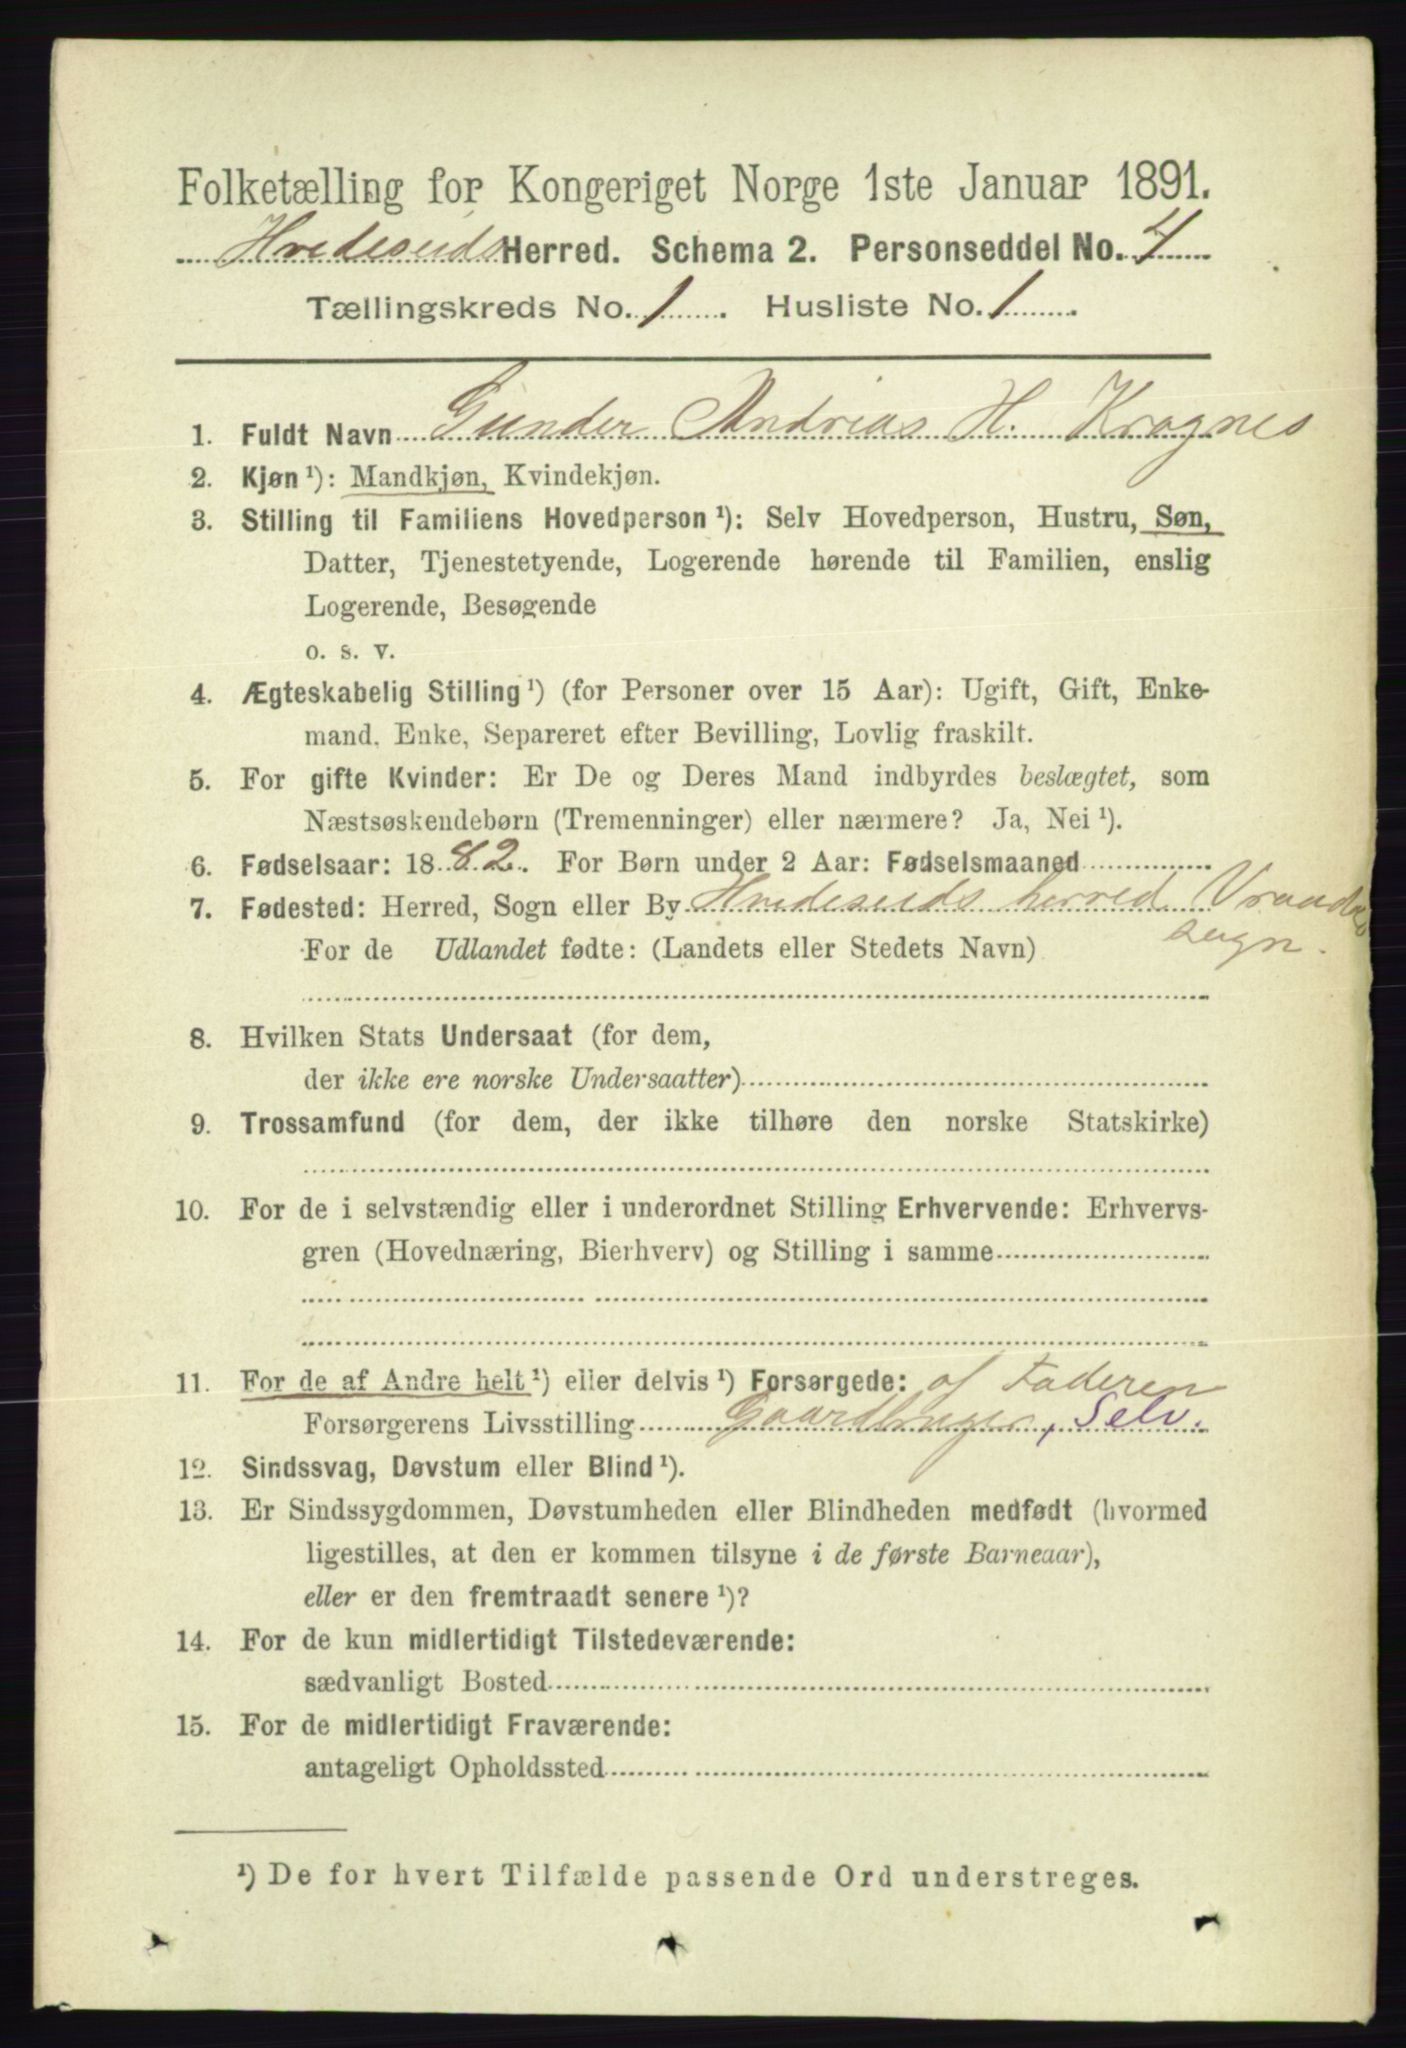 Folketælling for Kongeriget Norge 1ste Januar 1891.
Hvideseids Herred. Schema 2. Personseddel No. 4
Tællingskreds No. 1. Husliste No. 1.
1. Fuldt Navn Gunder Andrias H. Kragnes
2. Kjøn ¹): Mandkjøn, Kvindekjøn.
3. Stilling til Familiens Hovedperson ¹): Selv Hovedperson, Hustru, Søn,
Datter, Tjenestetyende, Logerende hørende til Familien, enslig
Logerende, Besøgende
o. s. v.
4. Ægteskabelig Stilling ¹) (for Personer over 15 Aar): Ugift, Gift, Enke-
mand, Enke, Separeret efter Bevilling, Lovlig fraskilt.
5. For gifte Kvinder: Er De og Deres Mand indbyrdes beslægtet, som
Næstsøskendebørn (Tremenninger) eller nærmere? Ja, Nei ¹).
6. Fødselsaar: 1882. For Børn under 2 Aar: Fødselsmaaned
7. Fødested: Herred, Sogn eller By Hvideseids herred Vraadals
sogn.
For de Udlandet fødte: (Landets eller Stedets Navn)
8. Hvilken Stats Undersaat (for dem,
der ikke ere norske Undersaatter)
9. Trossamfund (for dem, der ikke tilhøre den norske Statskirke)
10. For de i selvstændig eller i underordnet Stilling Erhvervende: Erhvervs-
gren (Hovednæring, Bierhverv) og Stilling i samme
11. For de af Andre helt ¹) eller delvis ¹) Forsørgede: af Faderen
Forsørgerens Livsstilling Gaardbruger, Selv.
12. Sindssvag, Døvstum eller Blind ¹).
13. Er Sindssygdommen, Døvstumheden eller Blindheden medfødt (hvormed
ligestilles, at den er kommen tilsyne i de første Barneaar),
eller er den fremtraadt senere ¹)?
14. For de kun midlertidigt Tilstedeværende:
sædvanligt Bosted
15. For de midlertidigt Fraværende:
antageligt Opholdssted
¹) De for hvert Tilfælde passende Ord understreges.